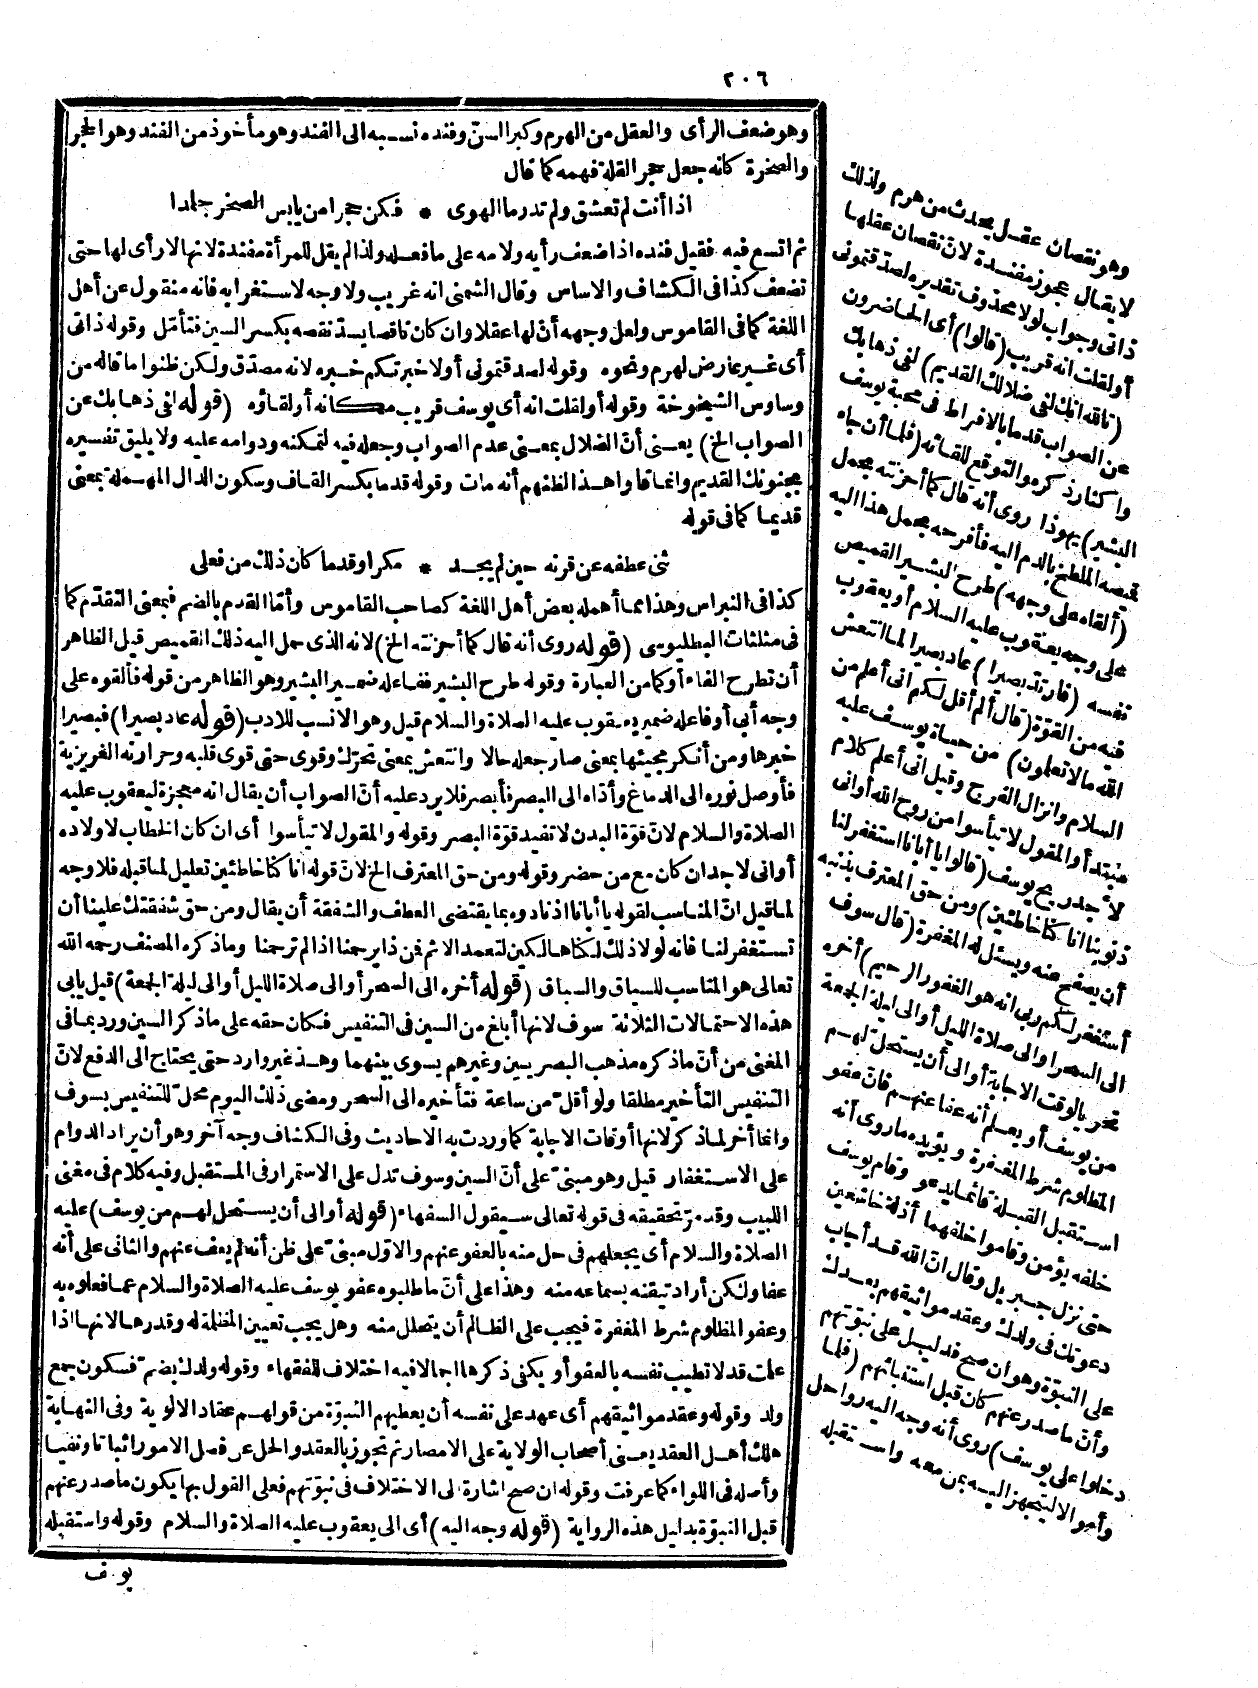 ٢٠٦
وهو ضعف الرأى والعقل من الهرم وكبر السنّ وفنده نسبه الى الفند وهو مأخوذ من الفند وهو الحجر
والصخرة كانه جعل حجر القلة فهمه كما قال
اذا أنت لم تعشق ولم تدر ما الهوى * فكن حجرا من يابس الصخر جلدا
ثم اتسع فيه فقيل فنده اذا ضعف رأيه ولامه على ما فعله ولذا لم يقل للمرأة مفندة لانها لا رأى لها حتى
تضعف كذا فى الكشاف والاساس وقال الشمنى انه غريب ولا وجه لاستغرابه فانه منقول عن أهل
اللغة كما فى القاموس ولعل وجهه أنّ لها عقلا وان كان ناقصا يشتدّ نقصه بكسر السين فتأمّل وقوله ذاتى
أى غير عارض لهرم ونحوه وقوله لصدقتمونى أو لاخبرتكم خبره لانه مصدق ولكن ظنوا ما قاله من
وساوس الشيخوخة وقوله أو لقلت انه أى يوسف قريب مكانه أو لقاؤه (قوله لفى ذهابك عن
الصواب الخ) يعنى أنّ الضلال بمعنى عدم الصواب وجعله فيه لتمكنه ودوامه عليه ولا يليق تفسيره
بجنونك القديم وانما قالوا هذا لظنهم أنه مات وقوله قدما بكسر القاف وسكون الدال المهملة بمعنى
قديما كما فى قوله
ثنى عطفه عن قرنه حين لم يجد * مكرا وقدما كان ذلك من فعلى
كذا فى النبراس وهذا مما أهمله بعض أهل اللغة كصاحب القاموس وأمّا القدم بالضم فبمعنى التقدّم كما
فى مثلثات البطليوسى (قوله روى أنه قال كما أحزنته الخ) لانه الذى حمل اليه ذلك القميص قيل الظاهر
أن تطرح الفاء أو كما من العبارة وقوله طرح البشير ففاعله ضمير البشير وهو الظاهر من قوله فألقوه على
وجه أبى أو فاعله ضمير يعقوب عليه الصلاة والسلام قيل وهو الانسب للادب (قوله عاد بصيرا) فبصيرا
خبرها ومن أنكر مجيئها بمعنى صار جعله حالا وانتعش بمعنى تحرّك وقوى حتى قوى قلبه وحرارته الغريزية
فأوصل نوره الى الدماغ وأدّاه الى البصر فأبصر فلا يرد عليه أنّ الصواب أن يقال انه معجزة ليعقوب عليه
الصلاة والسلام لانّ قوّة البدن لا تفيد قوّة البصر وقوله والمقول لا تيأسوا أى ان كان الخطاب لاولاده
أو انى لاجد ان كان مع من حضر وقوله ومن حق المعترف الخ لانّ قوله انا كنا خاطئين تعليل لما قبله فلا وجه
لما قيل انّ المناسب لقوله يا أبانا اذ نادوه بما يقتضى العطف والشفقة أن يقال ومن حق شفقتك علينا أن
تستغفر لنا فانه لولا ذلك لكنا هالكين لتعمد الاثم فمن ذا يرحمنا اذا لم ترحمنا وما ذكره المصنف رحمه الله
تعالى هو المناسب للسياق والسباق (قوله أخره الى السحر أو الى صلاة الليل أو الى ليلة الجمعة) قيل يابى
هذه الاحتمالات الثلاثة سوف لانها أبلغ من السين فى التنفيس فكان حقه على ما ذكر السين ورد بما فى
المغنى من أنّ ما ذكره مذهب البصريين وغيرهم يسوى بينهما وهذا غير وارد حتى يحتاج الى الدفع لانّ
التنفيس التأخير مطلقا ولو أقلّ من ساعة فتأخيره الى السحر ومضى ذلك اليوم محلّ للتنفيس بسوف
وانما أخر لما ذكر لانها أوقات الاجابة كما وردت به الاحاديث وفى الكشاف وجه آخر وهو أن يراد الدوام
على الاستغفار قيل وهو مبنىّ على أنّ السين وسوف تدل على الاستمرار فى المستقبل وفيه كلام فى مغنى
اللبيب وقد مرّ تحقيقه فى قوله تعالى سيقول السفهاء (قوله أو الى أن يستحل لهم من يوسف) عليه
الصلاة والسلام أى يجعلهم فى حل منه بالعفو عنهم والاوّل مبنىّ على ظن أنه لم يعف عنهم والثانى على أنه
عفا ولكن أراد تيقنه بسماعه منه وهذا على أنّ ما طلبوه عفو يوسف عليه الصلاة والسلام عما فعلوه به
وعفو المظلوم شرط المغفرة فيجب على الظالم أن يتحلل منه وهل يجب تعيين المظلمة له وقدرها لانها اذا
علمت قد لا تطيب نفسه بالعفو أو يكفى ذكرها اجمالا فيه اختلاف للفقهاء وقوله ولدك بضمّ فسكون جمع
ولد وقوله وعقد مواثيقهم أى عهد على نفسه أن يعطيهم النبوّة من قولهم عقد الالوية وفى النهاية
هلك أهل العقد يعنى أصحاب الولاية على الامصار ثم تجوز بالعقد والحل عن فصل الامور اثباتا ونفيا
وأصله فى اللواء كما عرفت وقوله ان صح اشارة الى الاختلاف فى نبوّتهم فعلى القول بها يكون ما صدر عنهم
قبل النبوّة بدليل هذه الرواية (قوله وجه اليه) أى الى يعقوب عليه الصلاة والسلام وقوله واستقبله
يوسف
وهو نقصان عقل يحدث من هرم ولذلك
لا يقال عجوز مفندة لانّ نقصان عقلها
ذاتى وجواب لولا محذوف تقديره لصدقتمونى
أو لقلت انه قريب (قالوا) أى الحاضرون
(تالله انك لفى ضلالك القديم) لفى ذهابك
عن الصواب قدما بالافراط فى محبة يوسف
واكثار ذكره والتوقع للقائه (فلما أن جاء
البشير) يهوذا روى أنه قال كما أحزنته بحمل
قميصه الملطخ بالدم اليه فأفرحه بحمل هذا اليه
(ألقاه على وجهه) طرح البشير القميص
على وجه يعقوب عليه السلام أو يعقوب
نفسه (فارتدّ بصيرا) عاد بصيرا لما انتعش
فيه من القوّة (قال ألم أقل لكم انى أعلم من
الله ما لا تعلمون) من حياة يوسف عليه
السلام وانزال الفرج وقيل انى أعلم كلام
مبتدأ والمقول لا تيأسوا من روح الله أو انى
لأجد ريح يوسف (قالوا يا أبانا استغفر لنا
ذنوبنا انا كنا خاطئين) ومن حق المعترف بذنبه
أن يصفح عنه ويسئل له المغفرة (قال سوف
أستغفر لكم ربى انه هو الغفور الرحيم) أخره
الى السحر أو الى صلاة الليل أو الى ليلة الجمعة
تحريا لوقت الاجابة أو الى أن يستحلّ لهم
من يوسف أو يعلم أنه عفا عنهم فانّ عفو
المظلوم شرط المغفرة ويؤيده ما روى أنه
استقبل القبلة قائما يدعو وقام يوسف
خلفه يؤمن وقاموا خلفهما أذلة خاشعين
حتى نزل جبريل وقال انّ الله قد أجاب
دعوتك فى ولدك وعقد مواثيقهم بعدك
على النبوّة وهو ان صح فدليل على نبوّتهم
وأنّ ما صدر عنهم كان قبل استنبائهم (فلما
دخلوا على يوسف) روى أنه وجه اليه رواحل
وأموالا ليتجهز اليه بمن معه واستقبله